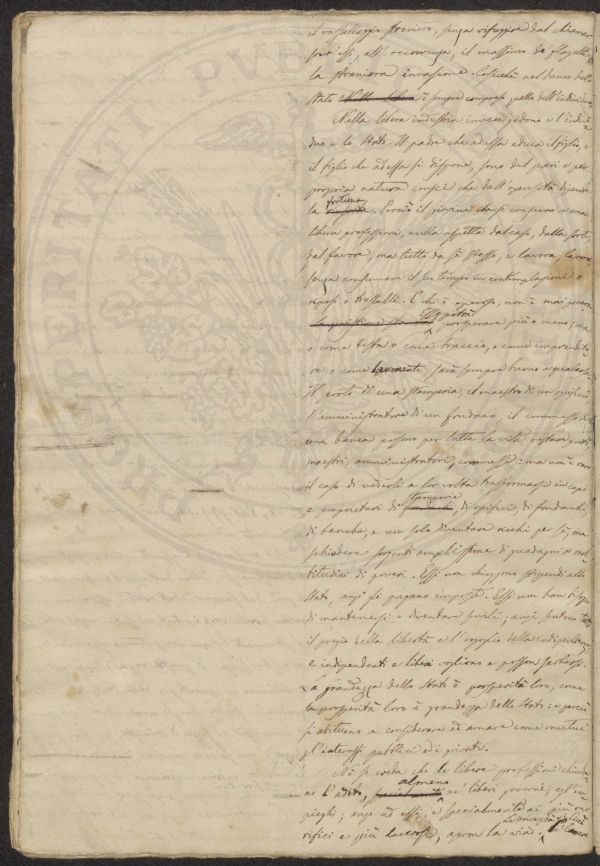 il vassallaggio straniero, senza rifuggire dal chiamar
sovr'essi, all'occorrenza, il massimo de' flagelli
la straniera invasione. Cosicchè nel danno dello
Stato è sempre compreso quello dell'individuo.
Nella libera industria invece, sono e l'indivi
duo e lo Stato. Il padre che adessa educa il figlio, e
il figlio che adessa si dispone, sono del pari e per
propria natura consci che dall'operosità dipende
la fortuna. Perciò il giovine che si consacra a una
libera professione, nulla aspetta dal caso, dalla sorte,
dal favore, ma tutto da sè stesso, e lavora, lavora
senza consumare il suo tempo in contemplazione o
riposi o trastulli. E chi è operoso, non è mai povero.
Egli potrà
prosperare più o meno; ma
o come testa o come braccia, o come imprendito
re o come sarà sempre buono a qualcosa.
Il proto di una stamperia, il maestro di un opificio
l'amministratore di un fondaco, il commesso di
una banca possono per tutta la vita restare proti,
maestri, amministratori, commessi: ma non è raro
il caso di vederli a lor volta trasformarsi in capi
e proprietari di stamperie, di opifici, di fondachi,
di banche, e non solo diventare ricchi per sè, ma
schiudere sorgenti amplissime di guadagni a mol
titudini di poveri. Essi non chieggono stipendi allo
Stato, anzi gli pagano imposte. Essi non han bisogno
di mantenersi o diventare servili, anzi sentono tutto
il pregio della libertà e l'orgoglio della indipendenza,
e indipendenti e liberi vogliono e posson serbarsi.
La grandezza dello Stato è prosperità loro, come
la prosperità loro è grandezza dello Stato: e perciò
si abituano a considerare ed amare come
gl'interessi pubblici ed i privati.
Nè si creda che le libere professioni chiuda
no l'adito, almeno ne' liberi governi, agl'im
pieghi; anzi ad essi, e specialmente ai più ono
rifici e più lucrosi, apron la via. Le